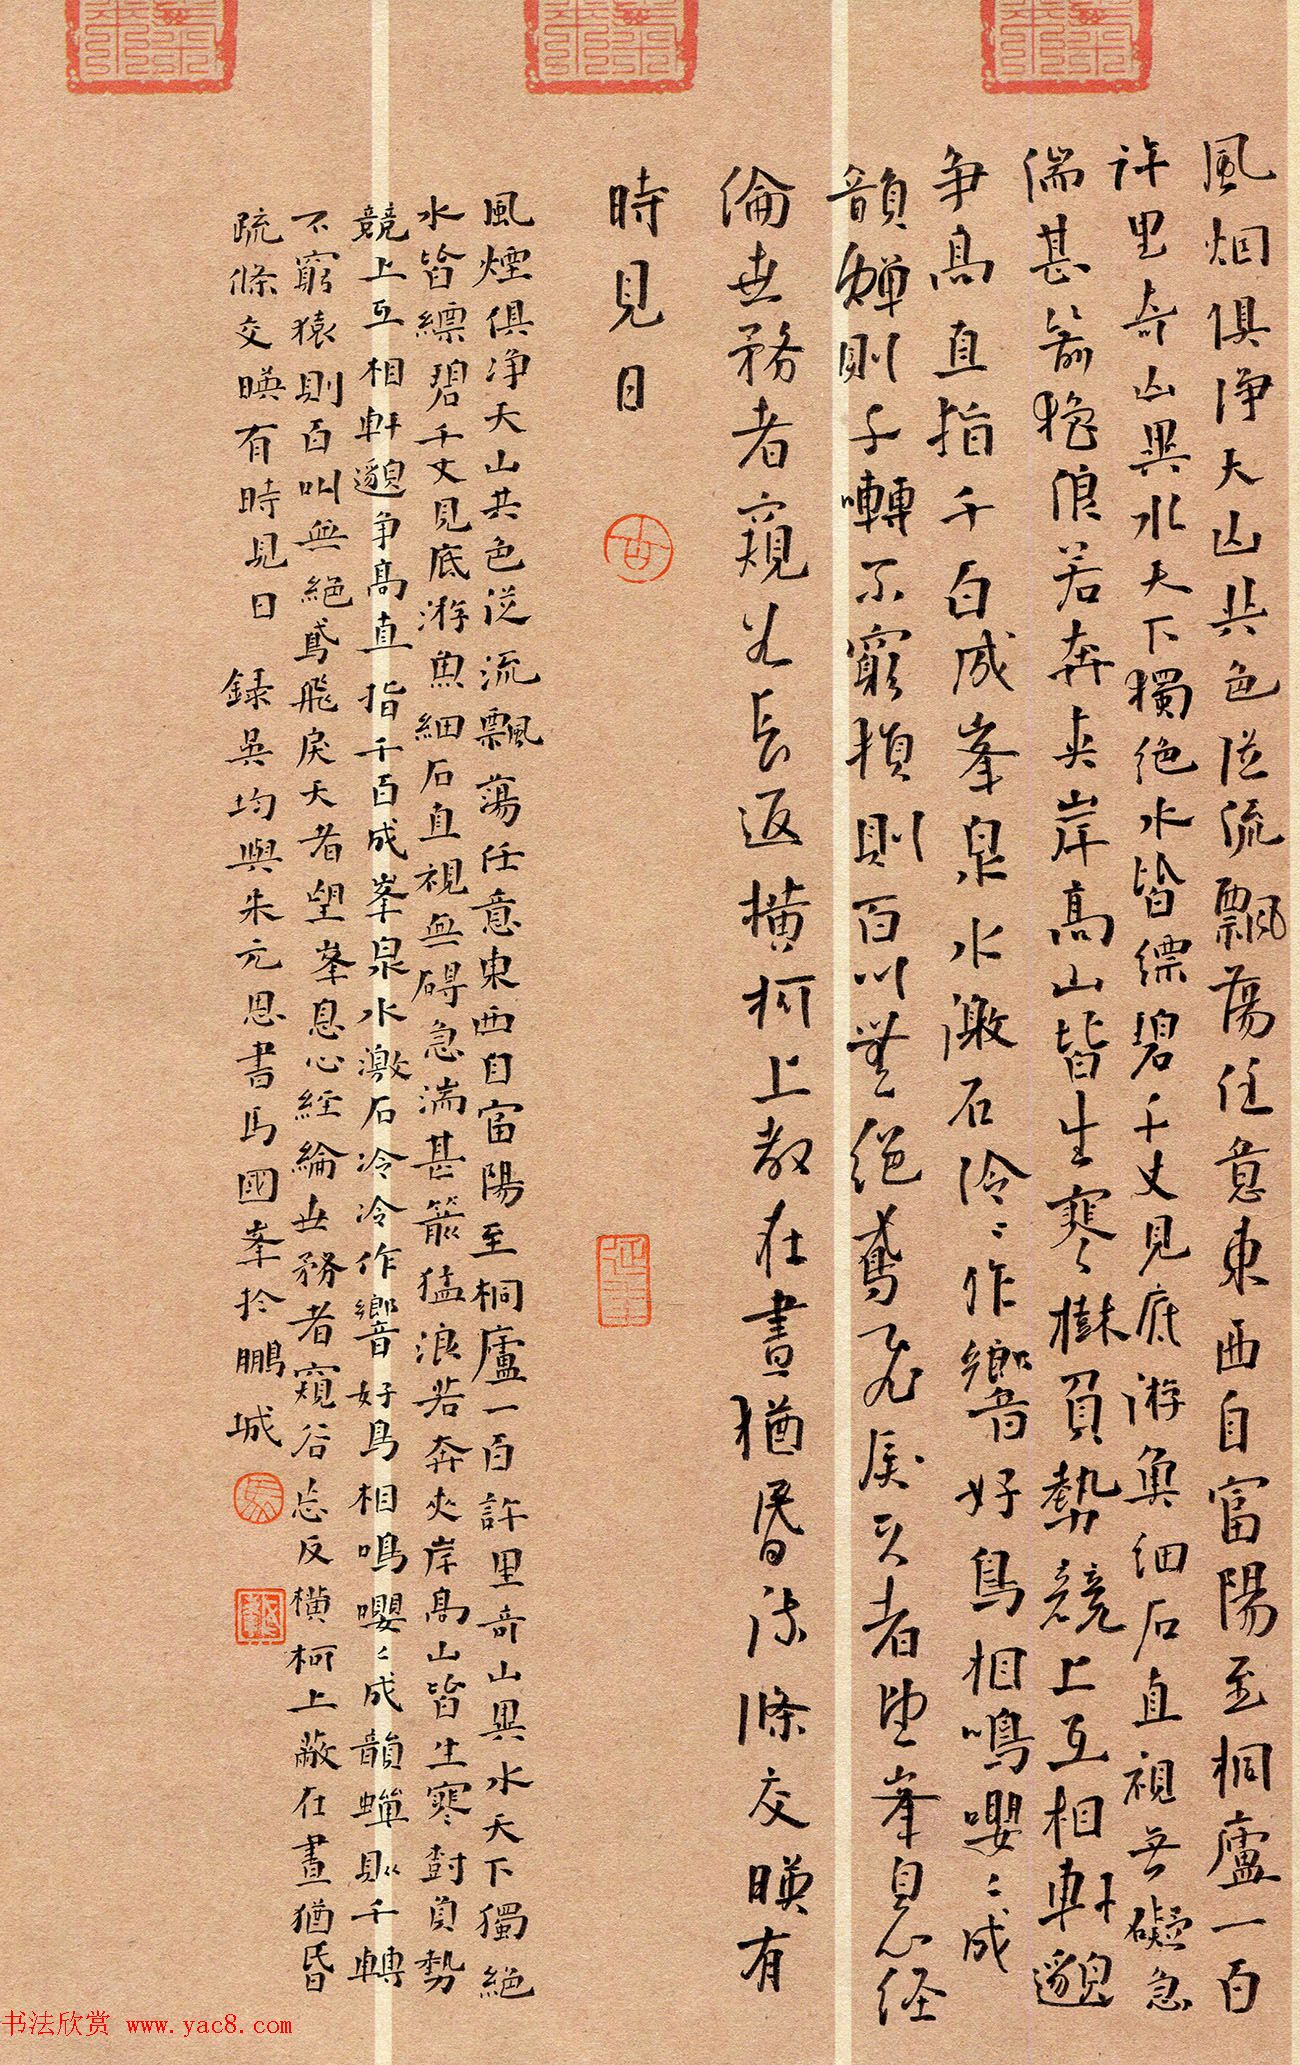 風烟俱浄天山共色従流飄蕩任意東西自富陽至桐廬一百
許里奇山異水天下獨絶水皆縹碧千丈見底游魚細石直視無礙急
湍甚箭猛浪若奔夹岸高山皆生寒樹負勢競上互相軒邈
争高直指千百成峯泉水激石泠〻作響好鳥相鳴嚶〻成
韻蟬則千囀不窮猿則百叫無絶鳶飛戾天者望峯息心经
倫世務者窺谷忘返横柯上蔽在晝猶昏疏條交映有
時見日
風煙俱浄天山共色従流飄蕩任意東西自富陽至桐廬一百許里奇山異水天下獨絶
水皆縹碧千丈見底游魚細石直視無碍急湍甚箭猛浪若奔夾岸高山皆生寒樹負勢
競上互相軒邈争高直指千百成峯泉水激石冷冷作響好鳥相鳴嚶〻成韻蟬則千轉
不窮猿則百叫無絶鳶飛戾天者望峯息心經綸世務者窺谷忘反横柯上蔽在晝猶昏
疏條交暎有時見日 録吳均與朱元思書馬國峯於鵬城
书法欣赏 www.yac8.com